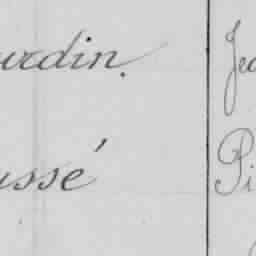 urdin. Je
ussé Pi